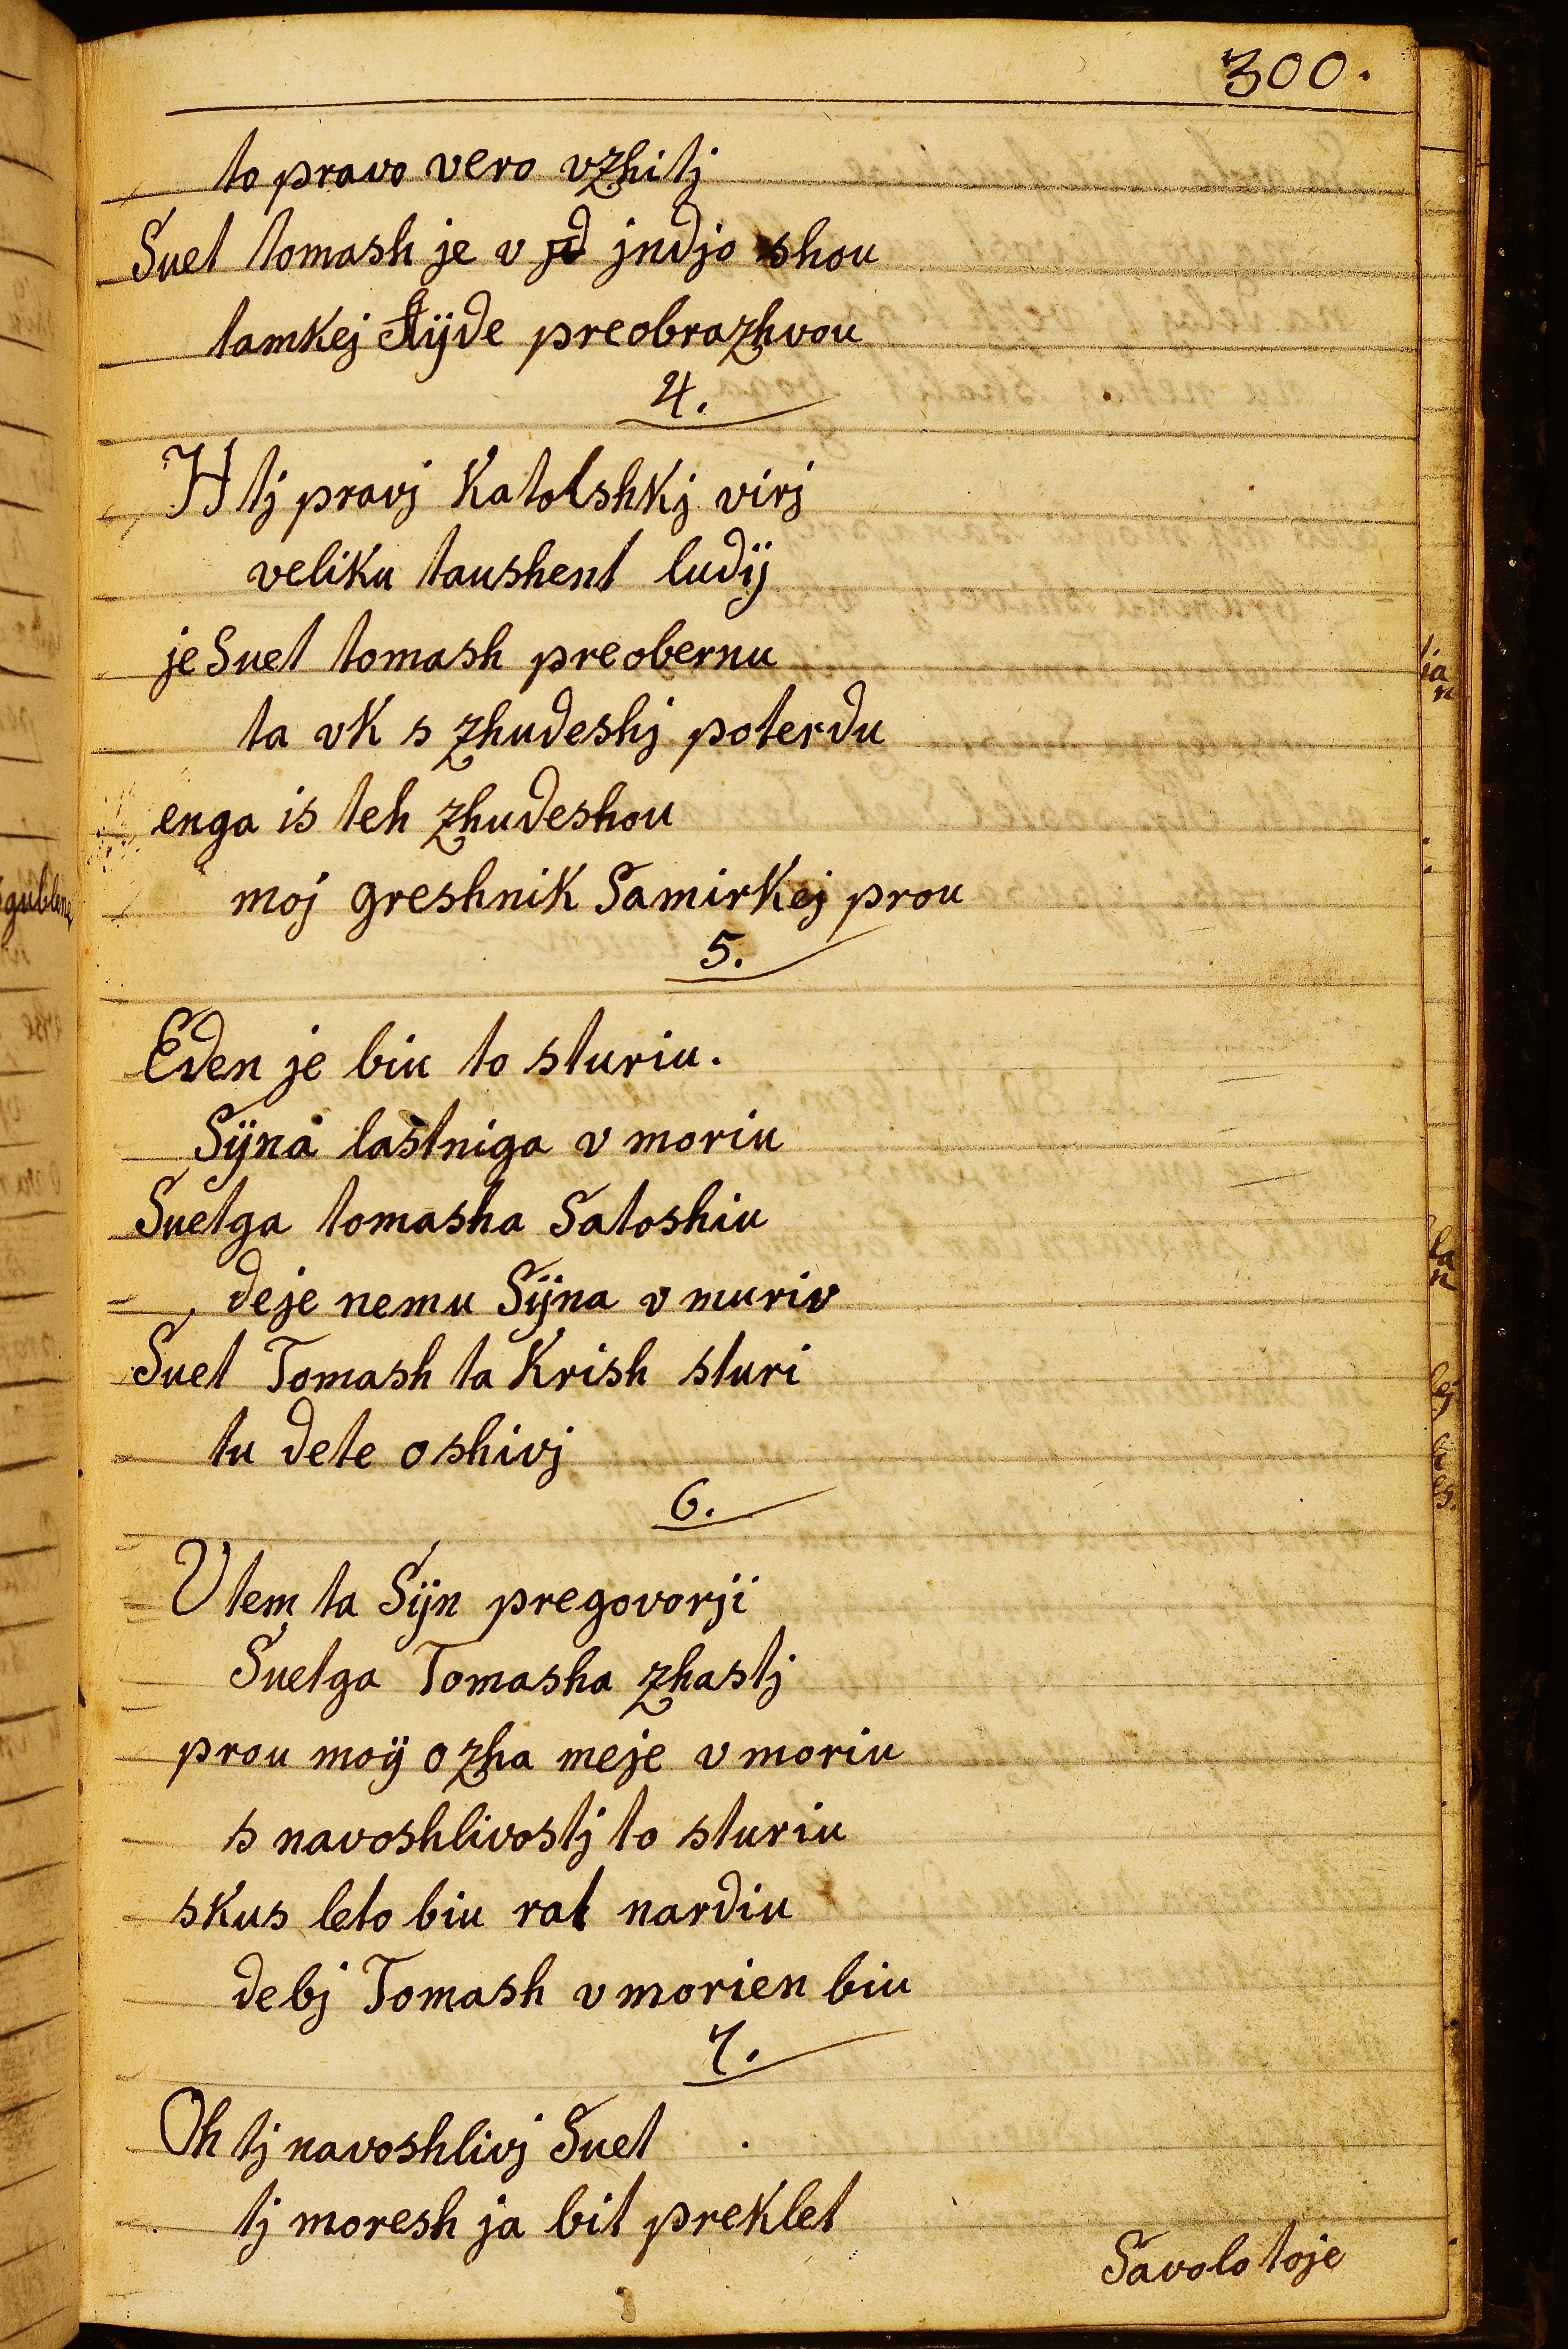 300.
to pravo vero vzhitj
Suet tomash je v jndjo shou
tamkej ajde preobrazhvou
4.
H tj pravj Katolshkj virj
veliku taushent ludij
je Suet tomash preobernu
ta vk s zhudeshj poterdu
enga is teh zhudeshou
moj greshnik Samirkej prou
5.
Eden je biu to sturiu.
Sijna lastniga v moriu
Suetga tomasha Satoshiu
de je nemu Sijna v muriv
Suet Tomash ta Krish sturi
tu dete oshivj
6.
V tem ta Sijn pregovorji
Suetga Tomasha zhastj
prou moij ozha meje v moriu
s navoshlivostj to sturiu
skus leto biu rat nardiu
debj Tomash v morien biu
7.
Oh tj navoshlivj Suet
tj moresh ja bit preklet
Savolo toje